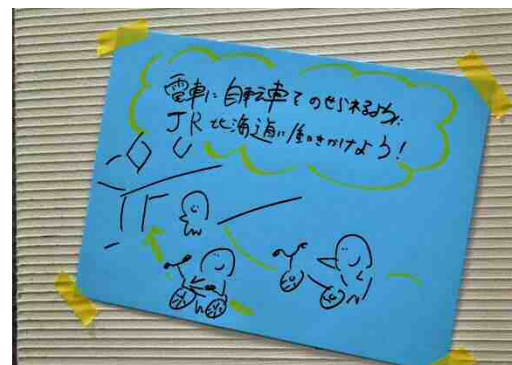 電車に自転車をのせられるように
JR北海道に働きかけよう!